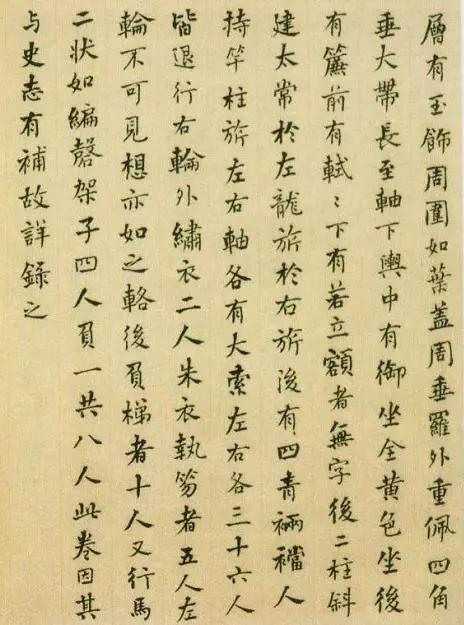 層有玉飾周圍如葉蓋周垂羅外重佩四角
垂大帶長至軸下輿中有御坐全黄色坐後
有簾前有軾〻下有若立額者無字後二柱斜
建太常於左龍旂於右旂後有四青裲襠人
持竿柱旂左右軸各有大索左右各三十六人
皆退行右輪外繡衣二人朱衣執笏者五人左
輪不可見想亦如之輅後負梯者十人又行馬
二状如編磬架子四人負一共八人此卷因其
与史志有補故詳錄之